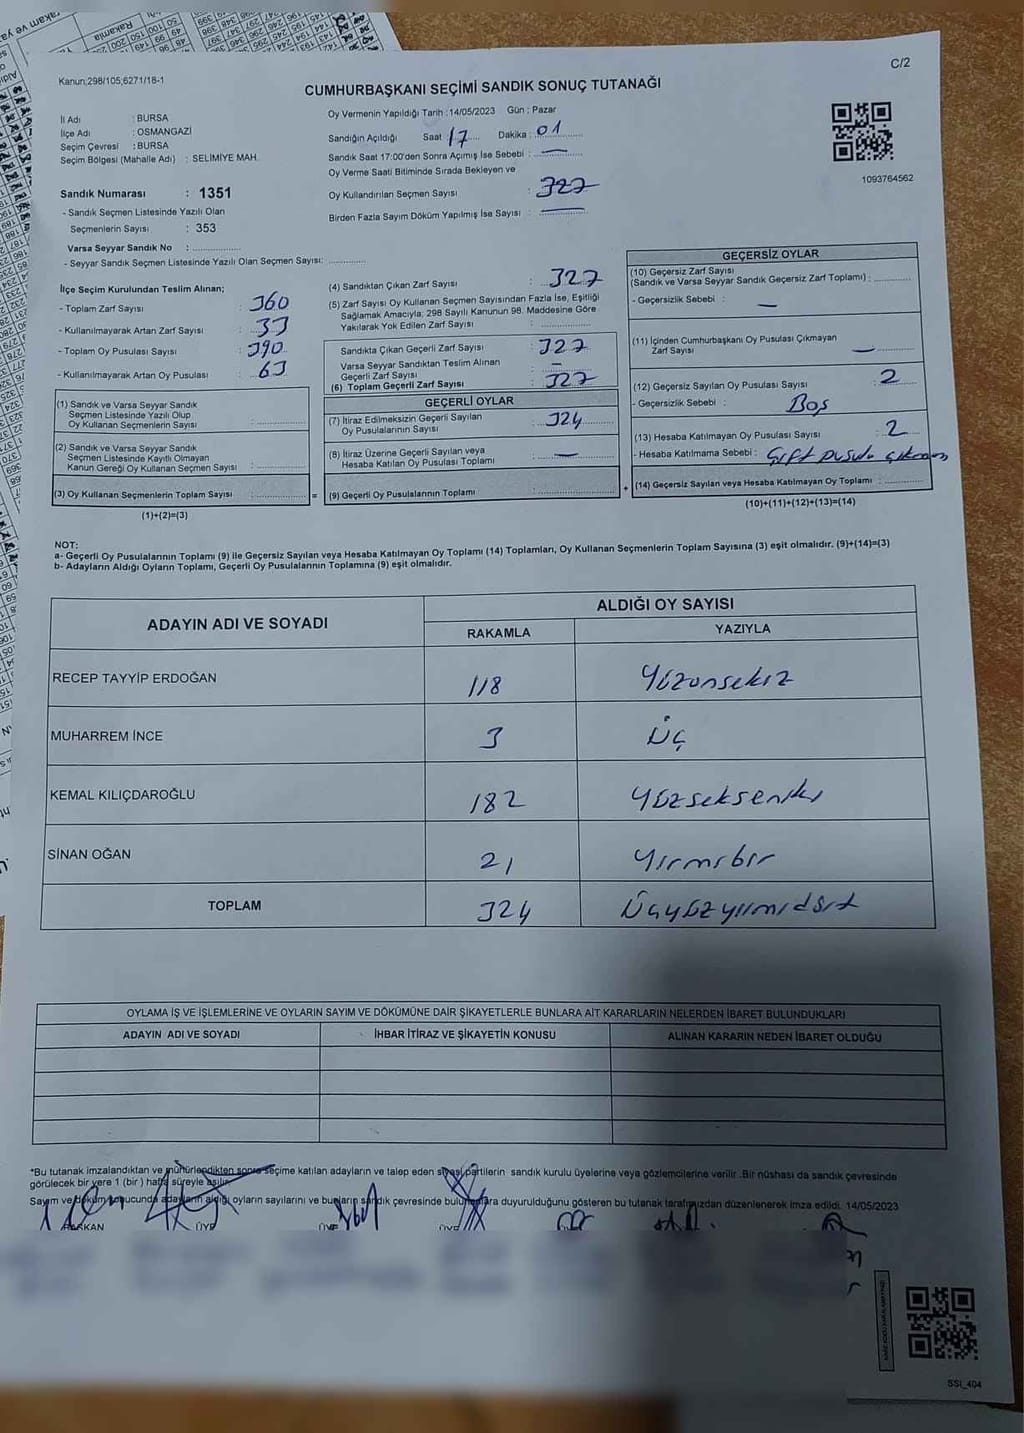 Kanun,298/105,6271/18-1
C/2
CUMHURBAŞKANI SEÇİMİ SANDIK SONUÇ TUTANAĞI
İl Adı : BURSA
İlçe Adı : OSMANGAZİ
Seçim Çevresi : BURSA
Seçim Bölgesi (Mahalle Adı) : SELİMİYE MAH.
Oy Vermenin Yapıldığı Tarih : 14/05/2023 Gün : Pazar
Sandığın Açıldığı Saat 17 Dakika : 01
Sandık Saat 17:00'den Sonra Açımış İse Sebebi : —
Oy Verme Saati Bitiminde Sırada Bekleyen ve
Oy Kullandırılan Seçmen Sayısı : 327
Birden Fazla Sayım Döküm Yapılmış İse Sayısı : —
1093764562
Sandık Numarası : 1351
- Sandık Seçmen Listesinde Yazılı Olan
Seçmenlerin Sayısı : 353
Varsa Seyyar Sandık No :
- Seyyar Sandık Seçmen Listesinde Yazılı Olan Seçmen Sayısı:
İlçe Seçim Kurulundan Teslim Alınan;
- Toplam Zarf Sayısı : 360
- Kullanılmayarak Artan Zarf Sayısı : 33
- Toplam Oy Pusulası Sayısı : 390
- Kullanılmayarak Artan Oy Pusulası : 63
(1) Sandık ve Varsa Seyyar Sandık
Seçmen Listesinde Yazılı Olup
Oy Kullanan Seçmenlerin Sayısı :
(2) Sandık ve Varsa Seyyar Sandık
Seçmen Listesinde Kayıtlı Olmayan
Kanun Gereği Oy Kullanan Seçmen Sayısı :
(3) Oy Kullanan Seçmenlerin Toplam Sayısı :
(1)+(2)=(3)
(4) Sandıktan Çıkan Zarf Sayısı : 327
(5) Zarf Sayısı Oy Kullanan Seçmen Sayısından Fazla İse, Eşitliği
Sağlamak Amacıyla; 298 Sayılı Kanunun 98. Maddesine Göre
Yakılarak Yok Edilen Zarf Sayısı :
Sandıkta Çıkan Geçerli Zarf Sayısı : 327
Varsa Seyyar Sandıktan Teslim Alınan
Geçerli Zarf Sayısı : —
(6) Toplam Geçerli Zarf Sayısı : 327
GEÇERLİ OYLAR
(7) İtiraz Edilmeksizin Geçerli Sayılan
Oy Pusulalarının Sayısı : 324
(8) İtiraz Üzerine Geçerli Sayılan veya
Hesaba Katılan Oy Pusulası Toplamı : —
= (9) Geçerli Oy Pusulalarının Toplamı :
GEÇERSİZ OYLAR
(10) Geçersiz Zarf Sayısı
(Sandık ve Varsa Seyyar Sandık Geçersiz Zarf Toplamı) :
- Geçersizlik Sebebi : —
(11) İçinden Cumhurbaşkanı Oy Pusulası Çıkmayan
Zarf Sayısı : —
(12) Geçersiz Sayılan Oy Pusulası Sayısı : 2
- Geçersizlik Sebebi : Boş
(13) Hesaba Katılmayan Oy Pusulası Sayısı : 2
- Hesaba Katılmama Sebebi : Çift pusula
+ (14) Geçersiz Sayılan veya Hesaba Katılmayan Oy Toplamı :
(10)+(11)+(12)+(13)=(14)
NOT:
a- Geçerli Oy Pusulalarının Toplamı (9) ile Geçersiz Sayılan veya Hesaba Katılmayan Oy Toplamı (14) Toplamları, Oy Kullanan Seçmenlerin Toplam Sayısına (3) eşit olmalıdır. (9)+(14)=(3)
b- Adayların Aldığı Oyların Toplamı, Geçerli Oy Pusulalarının Toplamına (9) eşit olmalıdır.
ADAYIN ADI VE SOYADI
ALDIĞI OY SAYISI
RAKAMLA YAZIYLA
RECEP TAYYİP ERDOĞAN 118 Yüzonsekiz
MUHARREM İNCE 3 Üç
KEMAL KILIÇDAROĞLU 182 Yüzsekseniki
SİNAN OĞAN 21 Yirmibir
TOPLAM 324 Üçyüzyirmidört
OYLAMA İŞ VE İŞLEMLERİNE VE OYLARIN SAYIM VE DÖKÜMÜNE DAİR ŞİKAYETLERLE BUNLARA AİT KARARLARIN NELERDEN İBARET BULUNDUKLARI
ADAYIN ADI VE SOYADI İHBAR İTİRAZ VE ŞİKAYETİN KONUSU ALINAN KARARIN NEDEN İBARET OLDUĞU
*Bu tutanak imzalandıktan ve mühürlendikten sonra seçime katılan adayların ve talep eden siyasi partilerin sandık kurulu üyelerine veya gözlemcilerine verilir .Bir nüshası da sandık çevresinde
görülecek bir yere 1 (bir ) hafta süreyle asılır.
Sayım ve döküm sonucunda adayların aldığı oyların sayılarını ve bunların sandık çevresinde bulunanlara duyurulduğunu gösteren bu tutanak tarafımızdan düzenlenerek imza edildi. 14/05/2023
BAŞKAN ÜYE ÜYE ÜYE
SSİ_404